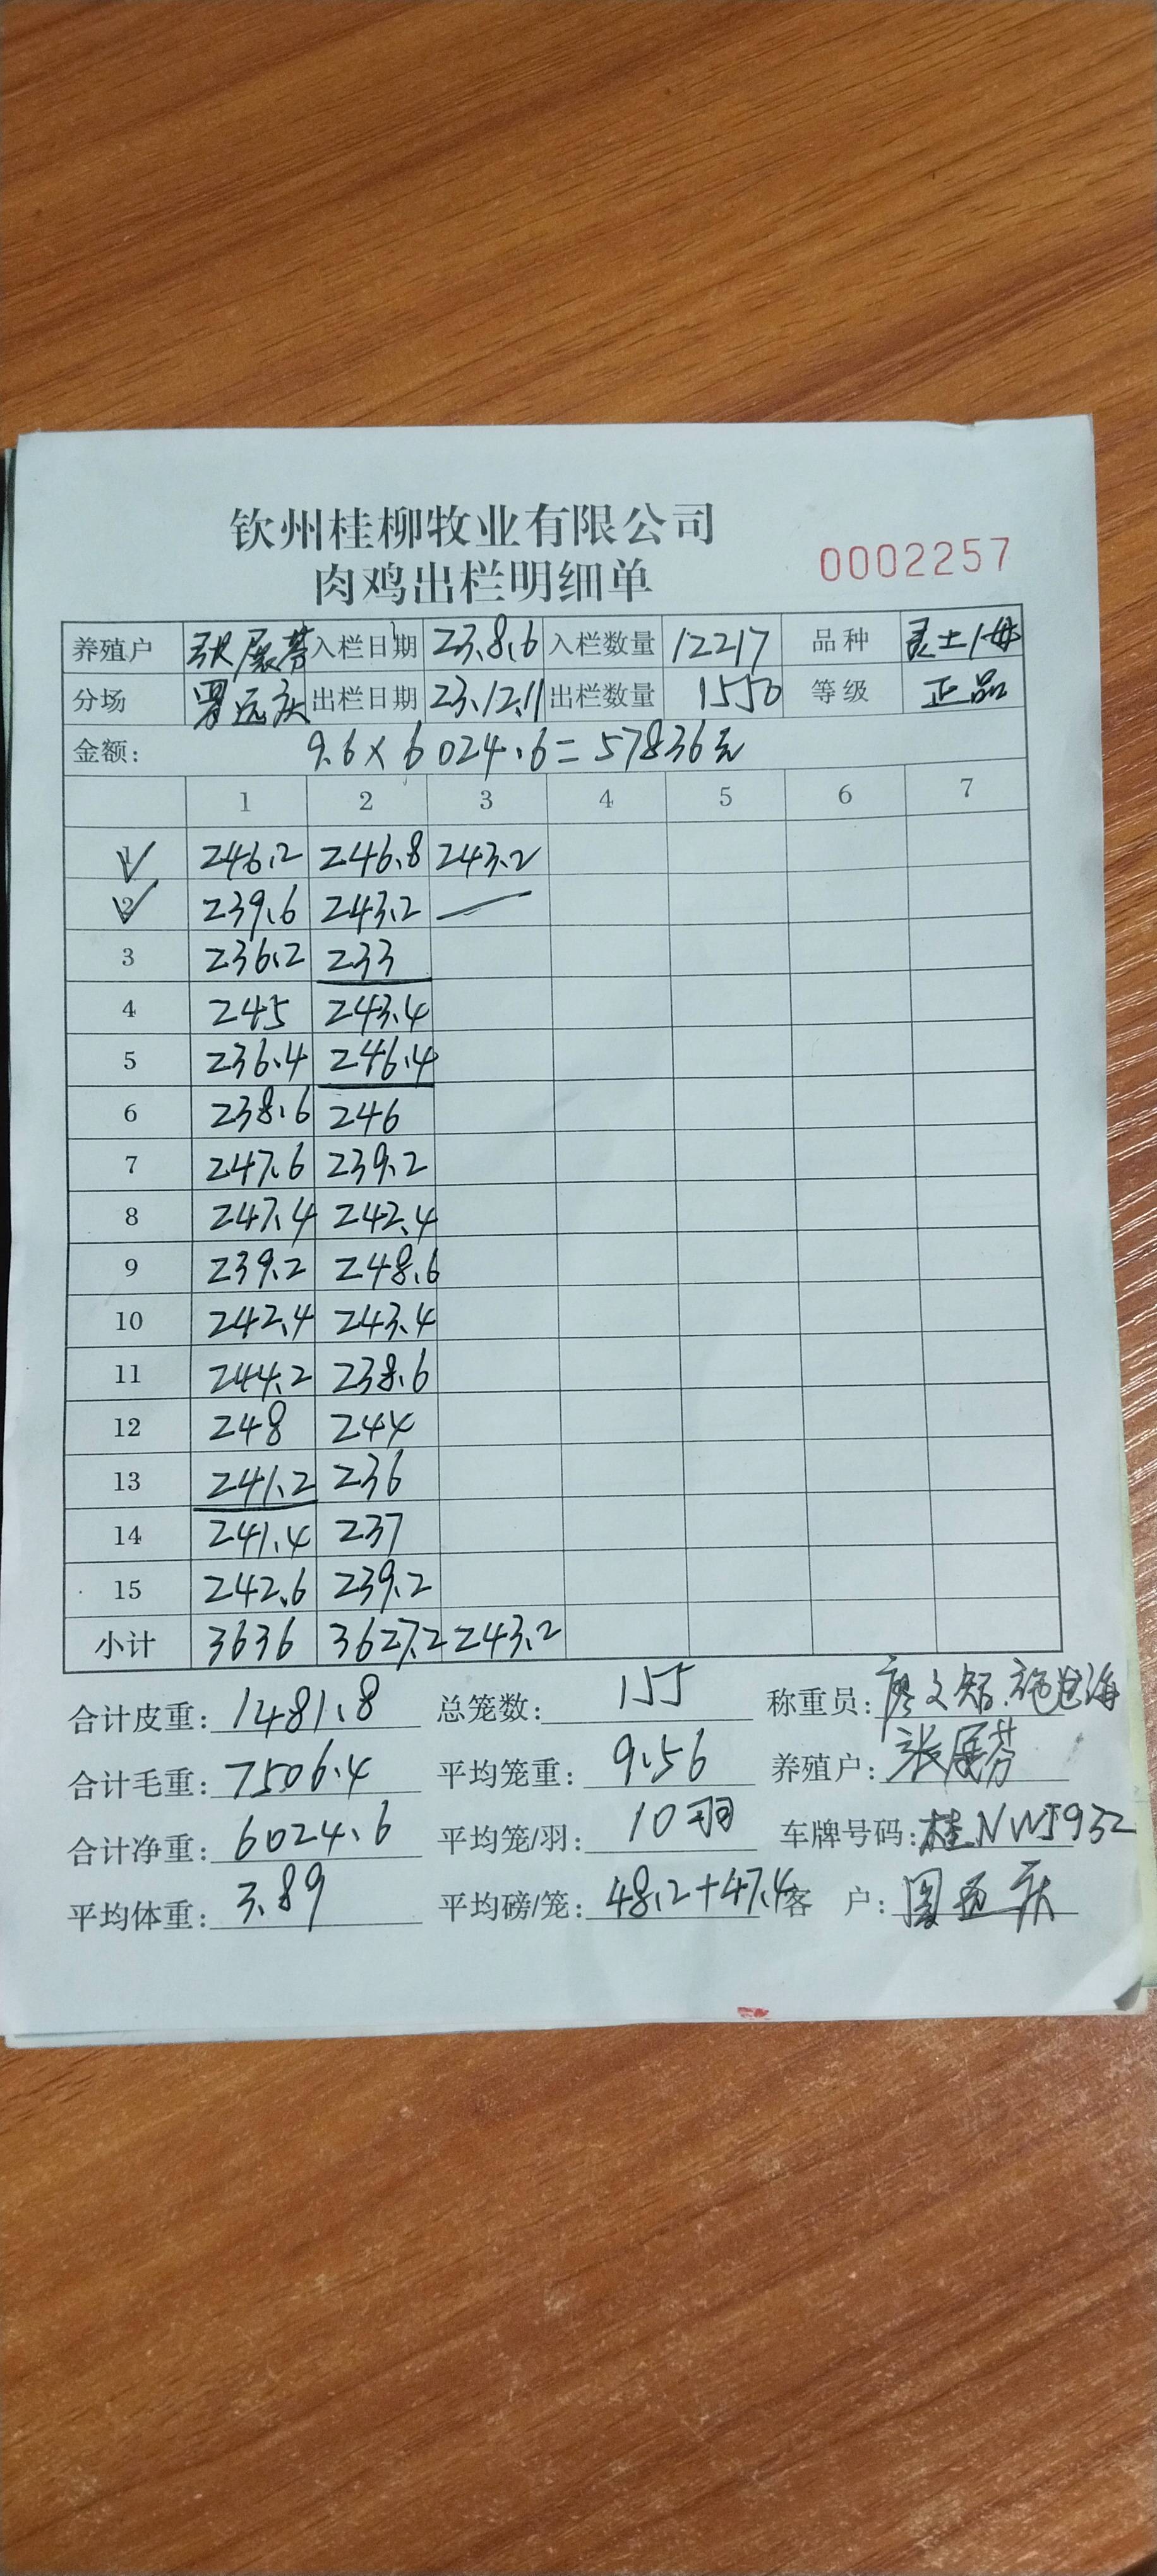 钦州桂柳牧业有限公司
肉鸡出栏明细单
0002257
养殖户 张展芬 入栏日期 23.8.6 入栏数量 12217 品种 灵土1母
分场 远庆 出栏日期 23.12.11 出栏数量 1550 等级 正品
金额: 9.6×6024.6=57836元
1 2 3 4 5 6 7
1 246.2 246.8 243.2
2 239.6 243.2 —
3 236.2 233
4 245 243.4
5 236.4 246.4
6 238.6 246
7 247.6 239.2
8 247.4 242.4
9 239.2 248.6
10 242.4 243.4
11 244.2 238.6
12 248 244
13 241.2 236
14 241.4 237
15 242.6 239.2
小计 3636 3627.2 243.2
合计皮重: 1481.8 总笼数: 155 称重员: 廖文韬.施海
合计毛重: 7506.4 平均笼重: 9.56 养殖户: 张展芬
合计净重: 6024.6 平均笼/羽: 10羽 车牌号码: 桂NW5932
平均体重: 3.89 平均磅/笼: 48.2+47.4 客 户: